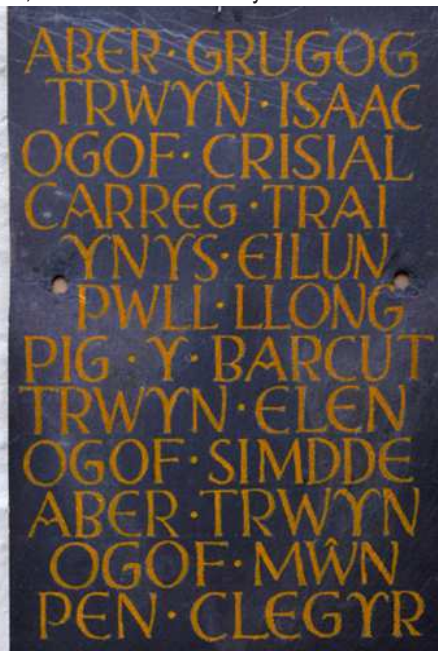 ABER · GRUGOG
TRWYN · ISAAC
OGOF · CRISIAL
CARREG · TRAI
YNYS · EILUN
PWLL · LLONG
PIG · Y · BARCUT
TRWYN · ELEN
OGOF · SIMDDE
ABER · TRWYN
OGOF · MŴN
PEN · CLEGYR